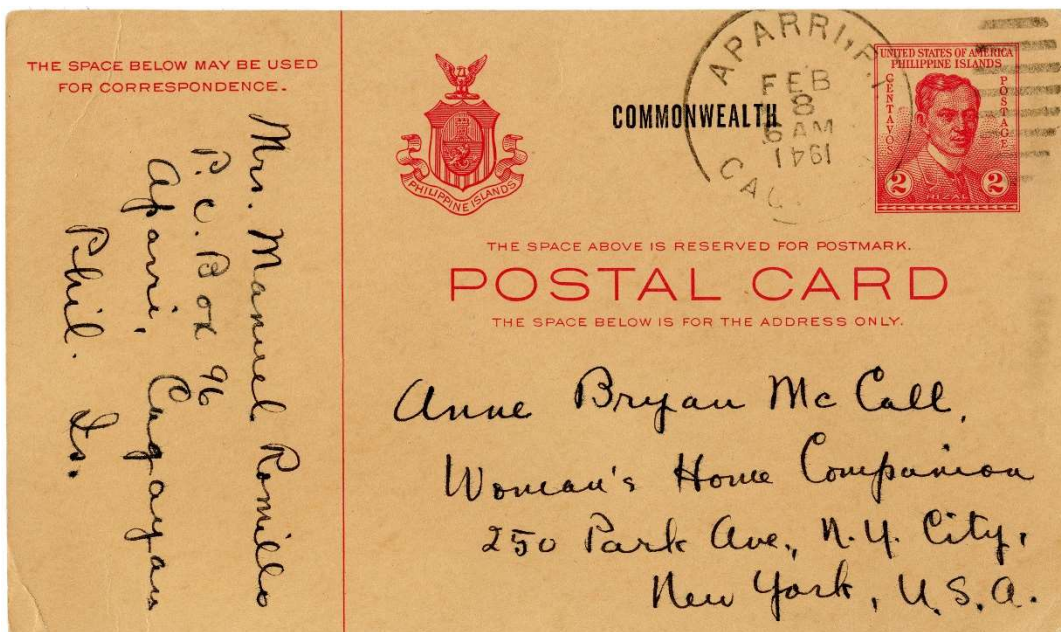 THE SPACE BELOW MAY BE USED
FOR CORRESPONDENCE.
Mrs. Manuel Romillo
P. O. Box 96
Aparri, Cagayan
Phil. Is.
PHILIPPINE ISLANDS
COMMONWEALTH
APARRI, P.I.
FEB
8
AM
1941
UNITED STATES OF AMERICA
PHILIPPINE ISLANDS
CENTAVOS
POSTAGE
2 2
RIZAL
THE SPACE ABOVE IS RESERVED FOR POSTMARK.
POSTAL CARD
THE SPACE BELOW IS FOR THE ADDRESS ONLY.
Anne Bryan McCall,
Woman's Home Companion
250 Park Ave., N.Y. City,
New York, U.S.A.